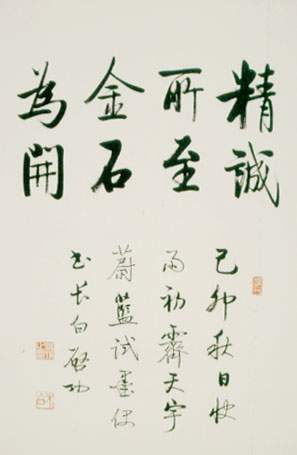 精誠
所至
金石
為開
己卯秋日快
雨初霽天宇
蔚藍試墨便
書長白啟功